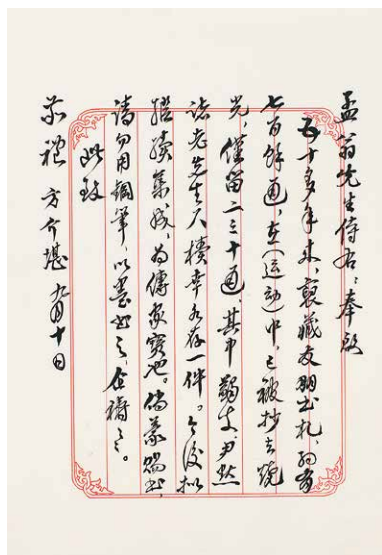 孟翁先生侍右：奉啟
五十多年来，裒藏友朋书札，约有
七百餘通，在（运动）中，已被抄去
光，僅留二三十通，其中 丈尹默
諸老先生尺牘幸各存一件。今後拟
繼續集成，為傳家寶也。倘蒙賜书，
請勿用鋼筆，以墨书之，企禱之。
此致
敬禮 方介堪 九月十日